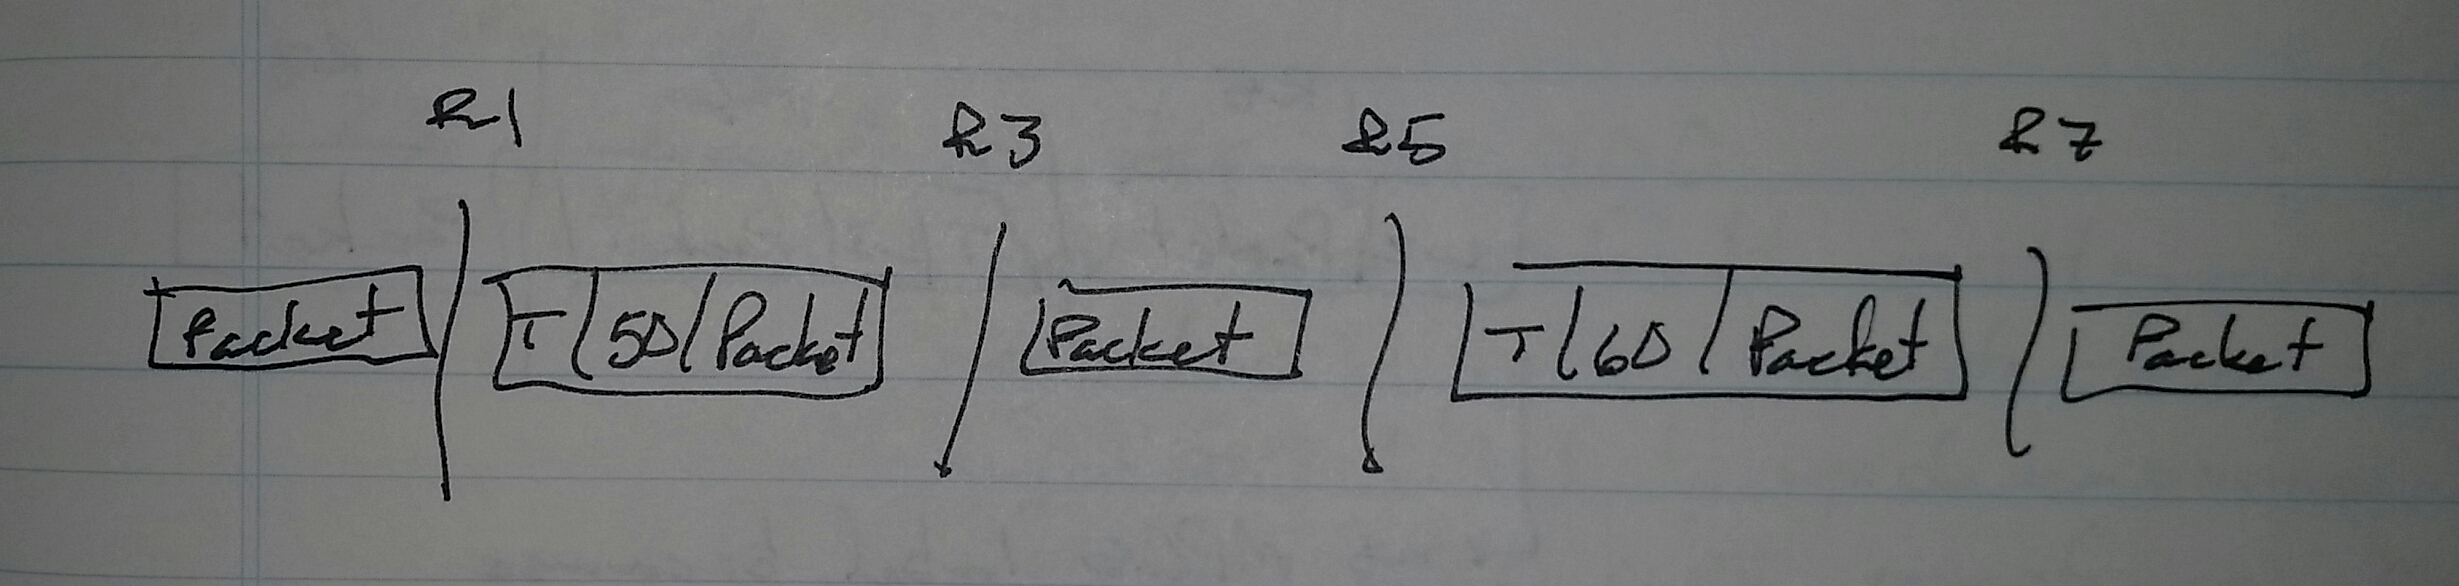 R1 R3 R5 R7
Packet T 50 Packet Packet T 60 Packet Packet